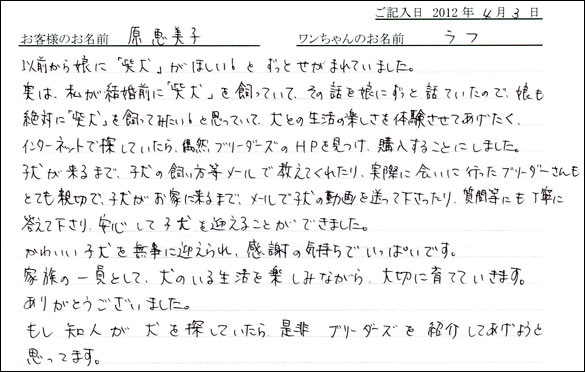 ご記入日 2012年 4月 3日
お客様のお名前 原 恵美子 ワンちゃんのお名前 ラフ
以前から娘に「柴犬」がほしい!とずっとせがまれていました。
実は、私が結婚前に「柴犬」を飼っていて、その話を娘にずっと話ていたので、娘も
絶対に「柴犬」を飼ってみたい!と思っていて、犬との生活の楽しさを体験させてあげたく、
インターネットで探していたら、偶然ブリーダーズのHPを見つけ、購入することにしました。
子犬が来るまで、子犬の飼い方等メールで教えてくれたり、実際に会いに行ったブリーダーさんも
とても親切で、子犬がお家に来るまで、メールで子犬の動画を送って下さったり、質問等にも丁寧に
答えて下さり、安心して子犬を迎えることができました。
かわいい子犬を無事に迎えられ、感謝の気持ちでいっぱいです。
家族の一員として、犬のいる生活を楽しみながら、大切に育てていきます。
ありがとうございました。
もし知人が犬を探していたら、是非ブリーダーズを紹介してあげようと
思ってます。